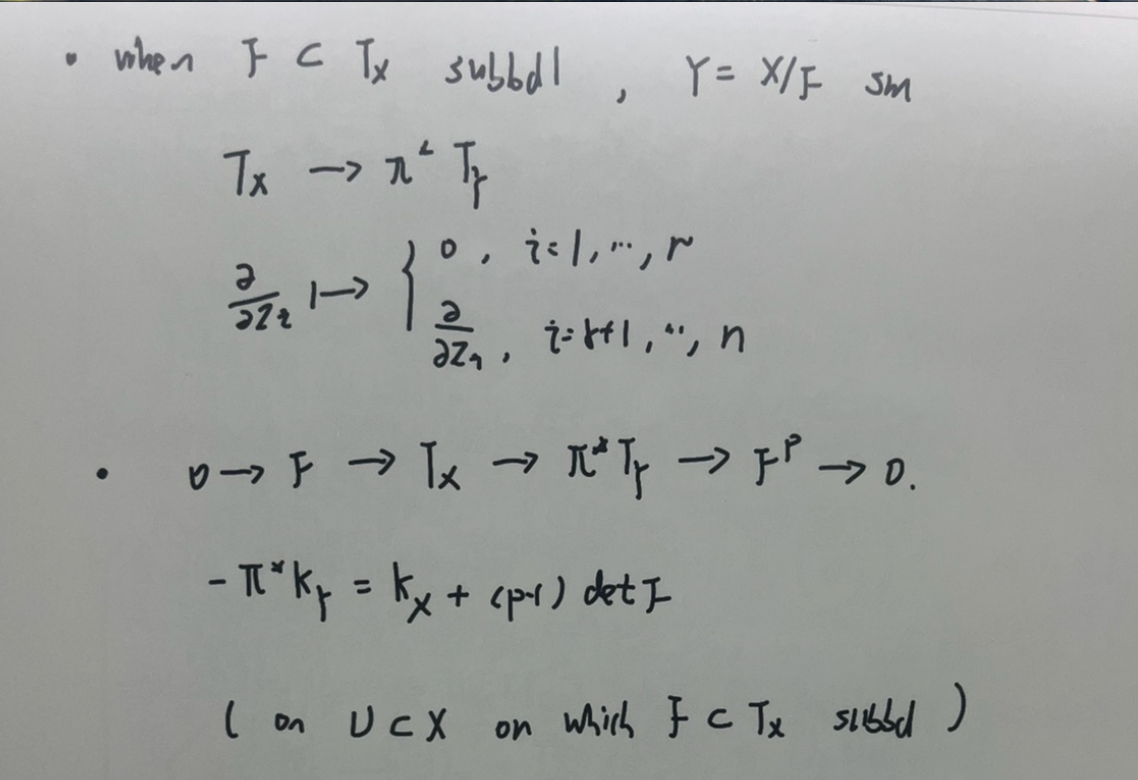 • when F ⊂ T_X subbdl , Y = X/F sm
T_X → π^* T_Y
∂/∂z_i ↦ { 0 , i=1, ..., r
∂/∂z_i , i=r+1, ..., n
• 0 → F → T_X → π^* T_Y → F^p → 0.
- π^* K_Y = K_X + (p-1) det F
( on U ⊂ X on which F ⊂ T_X subbd )